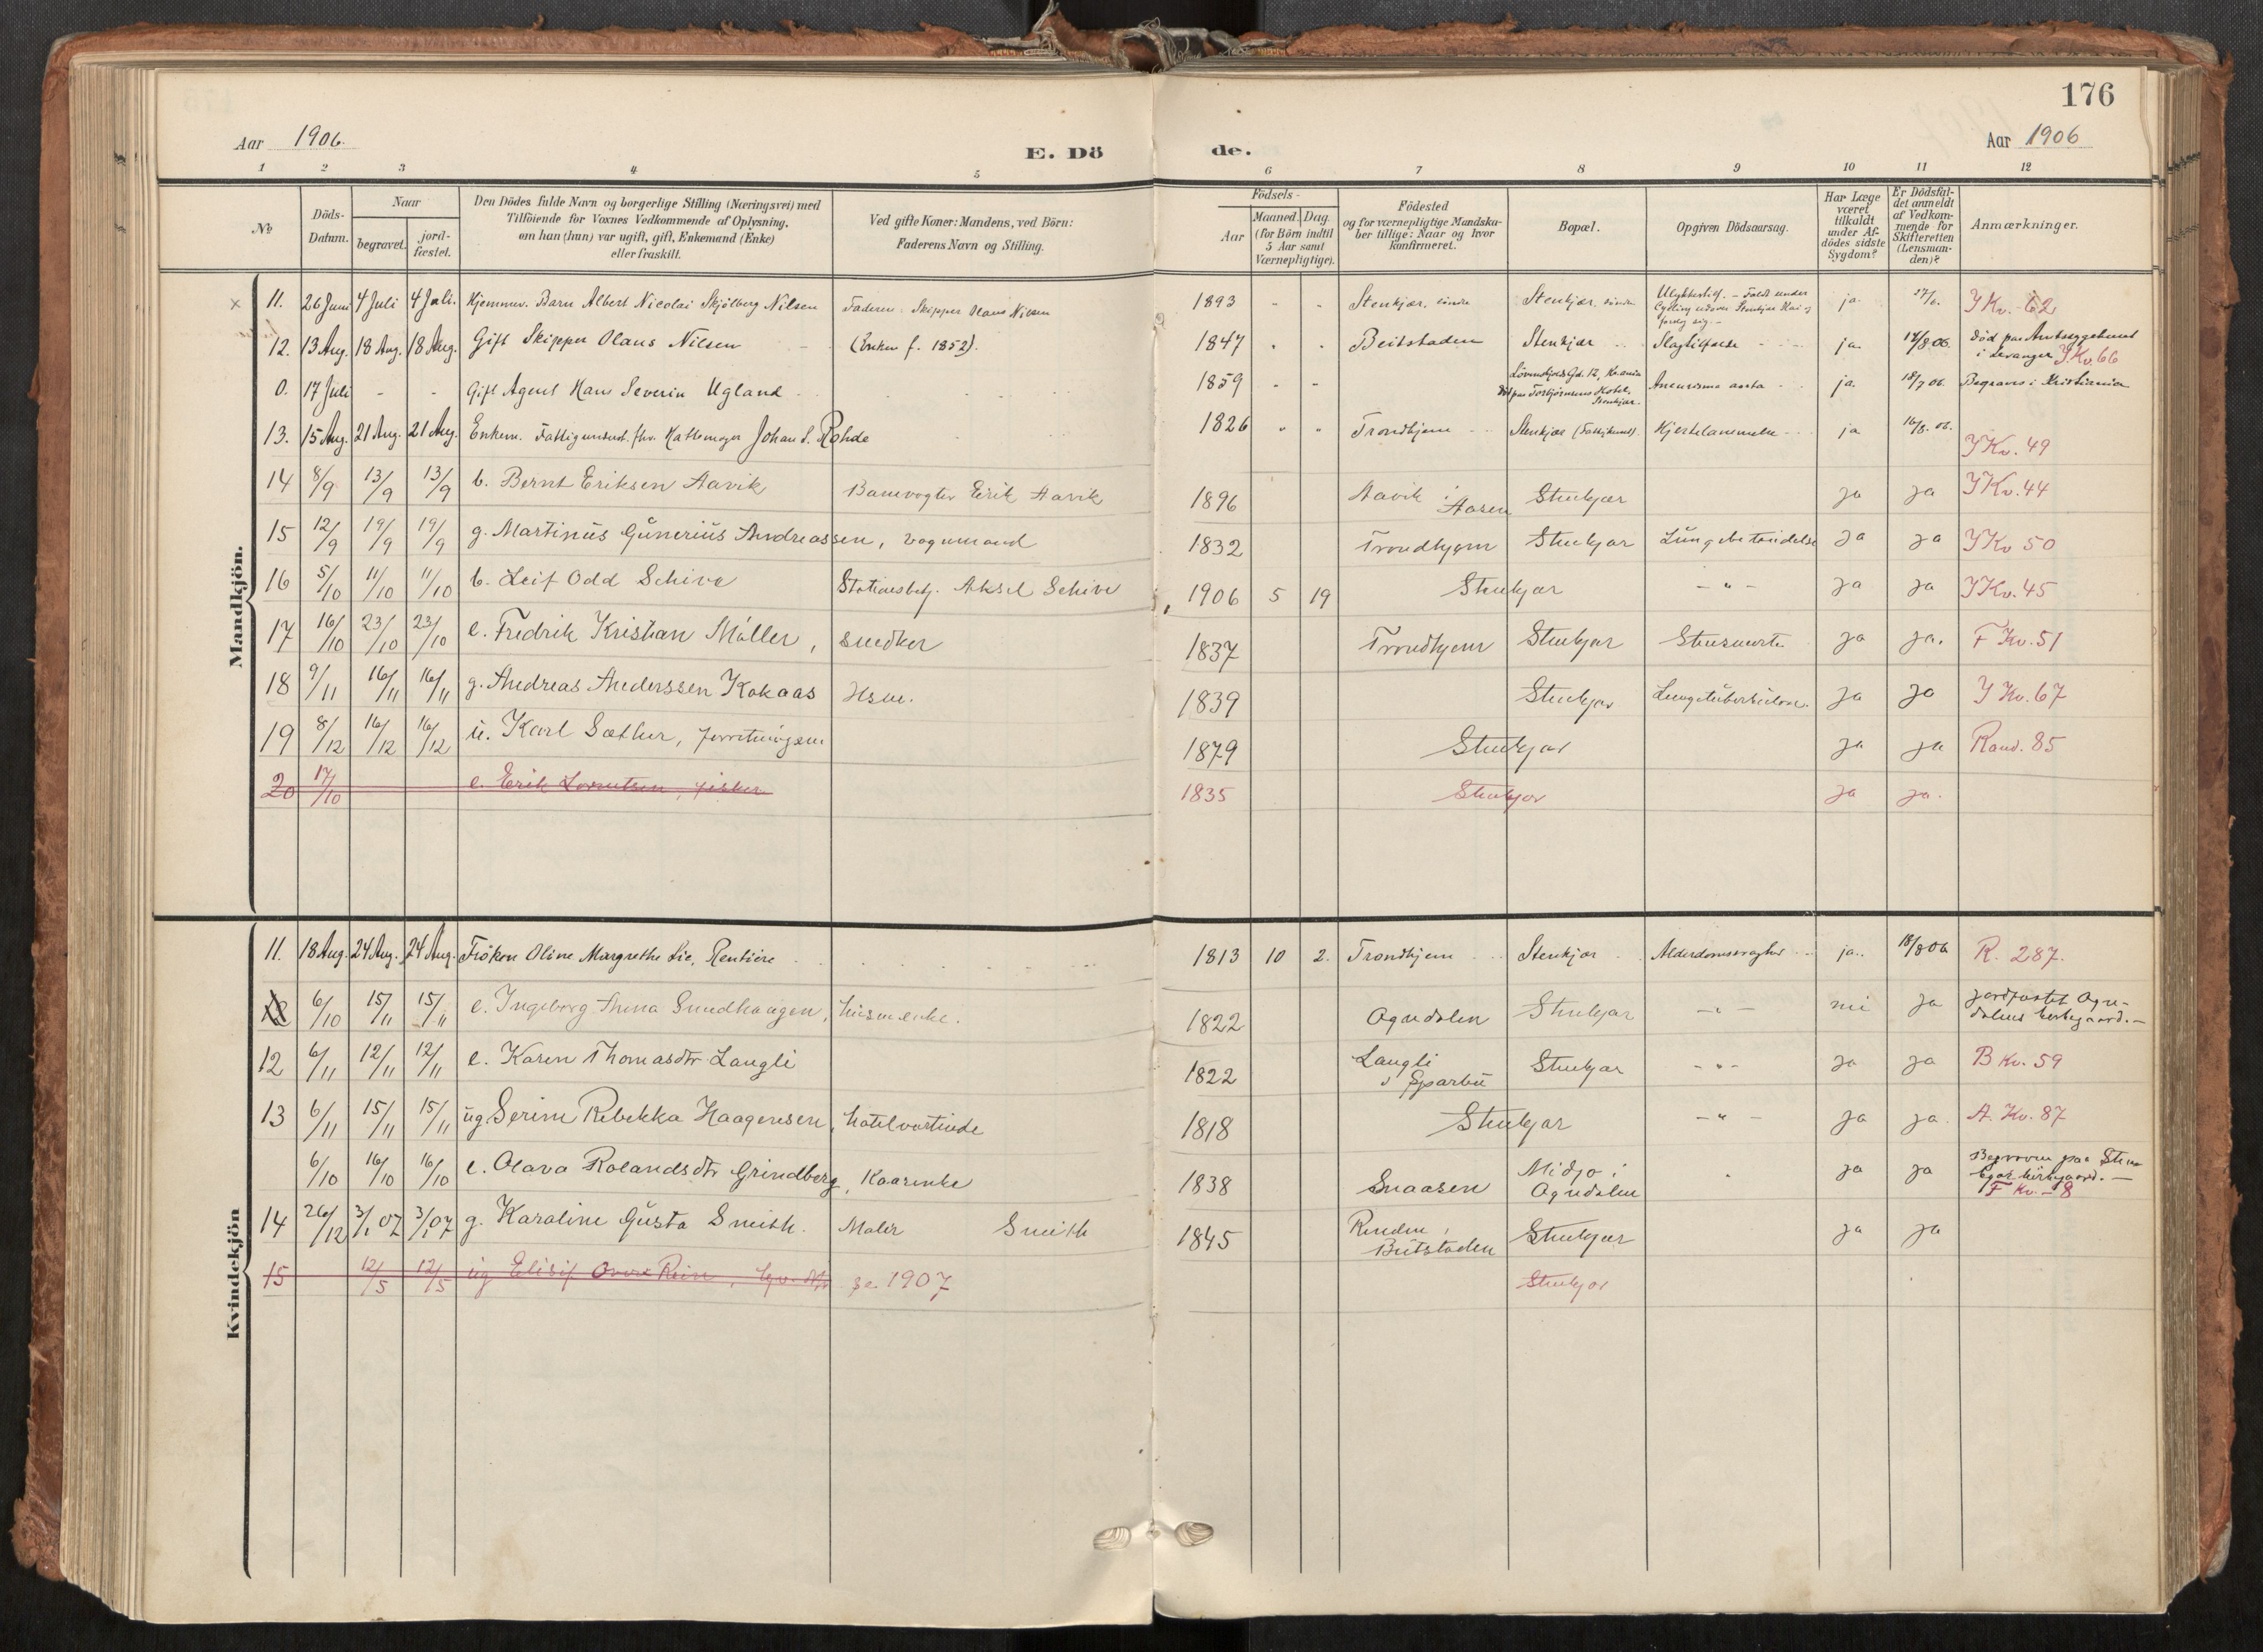 176
Aar 1906.
E. Dö
de.
Aar 1906
1 2 3 4 5 6 7 8 9 10 11 12
№
Döds-
Datum.
Naar
begravet.
jord-
fæstet.
Den Dödes fulde Navn og borgerlige Stilling (Næringsvei) med
Tilföiende for Voxnes Vedkommende af Oplysning,
om han (hun) var ugift, gift, Enkemand (Enke)
eller fraskilt.
Ved gifte Koner: Mandens, ved Börn:
Faderens Navn og Stilling.
Födsels-
Aar
Maaned. Dag.
(for Börn indtil
5 Aar samt
Værnepligtige).
Födested
og for værnepligtige Mandska-
ber tillige: Naar og hvor
konfirmeret.
Bopæl.
Opgiven Dödsaarsag.
Har Læge
været
tilkaldt
under Af-
dödes sidste
Sygdom?
Er Dödsfal-
det anmeldt
af Vedkom-
mende for
Skifteretten
(Lensman-
den)?
Anmærkninger.
Mandkjön.
11. 26 Juni 4 Juli 4 Juli. Hjemmev. Barn Albert Nicolai Skjölberg Nilsen Faderen: Skipper Olaus Nilsen 1893 - - Stenkjær, söndre Stenkjær, söndre Ulykkestilf. - Faldt under
Cycling udover Stenkjær Kai og
ja 27/6. Y Kv. 62
12. 13 Aug. 18 Aug. 18 Aug. Gift Skipper Olaus Nilsen (Enken f. 1852). 1847 Beitstaden Stenkjær Slagtilfælde ja 14/8 06. Död paa Amtssygehuset
i Levanger Y.Kv. 66
0. 17 Juli - - Gift Agent Hans Severin Ugland 1859 - - Gd. 12, Kr.ania
Död paa Torbjörnsens Hotel,
Stenkjær. Aneurisma aorta ja. 18/7 06. Begraves i Kristiania
13. 15 Aug. 21 Aug. 21 Aug. Enkem. Fattigunderst. fhv. Hattemager Johan S. Rohde 1826 Trondhjem Stenkjær (Fattighuset). Hjertelammelse ja 16/8. 06. Y Kv. 49
14 8/9 13/9 13/9 b. Bernt Eriksen Aavik Banevogter Erik Aavik 1896 Aavik i
Aasen Stenkjær ja ja Y Kv. 44
15 12/9 19/9 19/9 g. Martinus Gunerius Andreassen, vognmand 1832 Trondhjem Stenkjær Lungebetændelse ja ja Y Kv 50
16 5/10 11/10 11/10 b. Leif Odd Schive Stationsbetj. Aksel Schive 1906 5 19 Stenkjær - " - ja ja Y Kv. 45
17 16/10 23/10 23/10 e. Fredrik Kristian Müller, snedker 1837 Trondhjem Stenkjær ja ja. F Kv. 51
18 9/11 16/11 16/11 g. Andreas Anderssen Kokaas Hsm. 1839 Stenkjær Lungetuberkulose. ja ja Y Kv. 67
19 8/12 16/12 16/12 u. Karl Sæther, forretningsm 1879 Stenkjær ja ja Rand. 85
20 17/10 e. Erik Lorentsen, fisker 1835 Stenkjær ja ja.
Kvindekjön
11. 18 Aug. 24 Aug. 24 Aug. Fröken Oline Margrethe Lie, Rentiere 1813 10 2. Trondhjem Stenkjær Alderdomssvaghed ja. 18/8 06 R. 287.
6/10 15/11 15/11 e. Ingeborg Anna Sundhaugen, husmenke. 1822 Ogndalen Stenkjær - " - nei ja jordfæstet Ogn-
dalens kirkegaard. -
12 6/11 12/11 12/11 e. Karen Thomasdtr Langli 1822 Langli
i Sparbu Stenkjær - " - ja ja B Kv. 59
13 6/11 15/11 15/11 ug Serine Rebekka Haagensen, hotelvertinde 1818 Stenkjær - " - ja ja. A. Kv. 87
6/10 16/10 16/10 e. Olava Rolandsdtr Grindberg, Kaarenke 1838 Snaasen Midjo i
Ogndalen ja ja Begraven paa Sten
kjær kirkegaard. -
F Kv. - 8
14 26/12 3/1 07 3/1 07 g. Karoline Gusta Smith. Maler Smith 1845 Rinden i
Beitstaden Stenkjær ja ja
15 12/5 12/5 ug Elisif Rein, se. 1907 Stenkjær